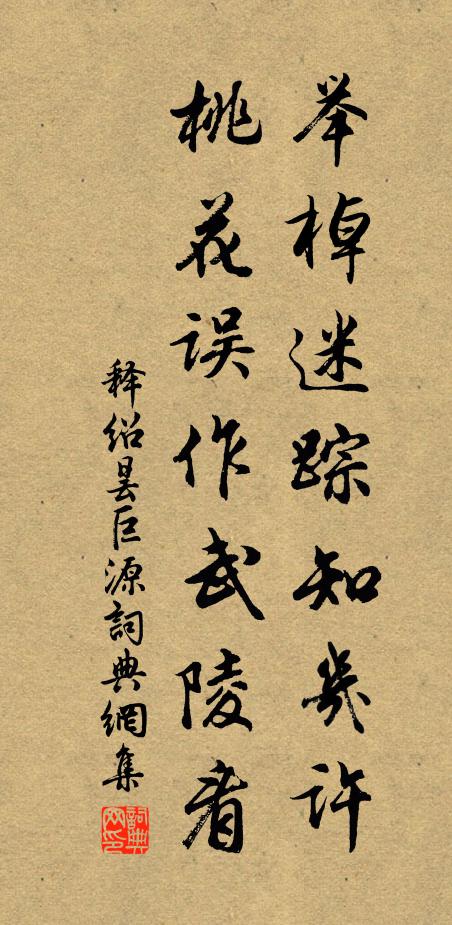 举棹迷踪知几许
桃花误作武陵看
释绍昙巨源詞典網集
詞典網印